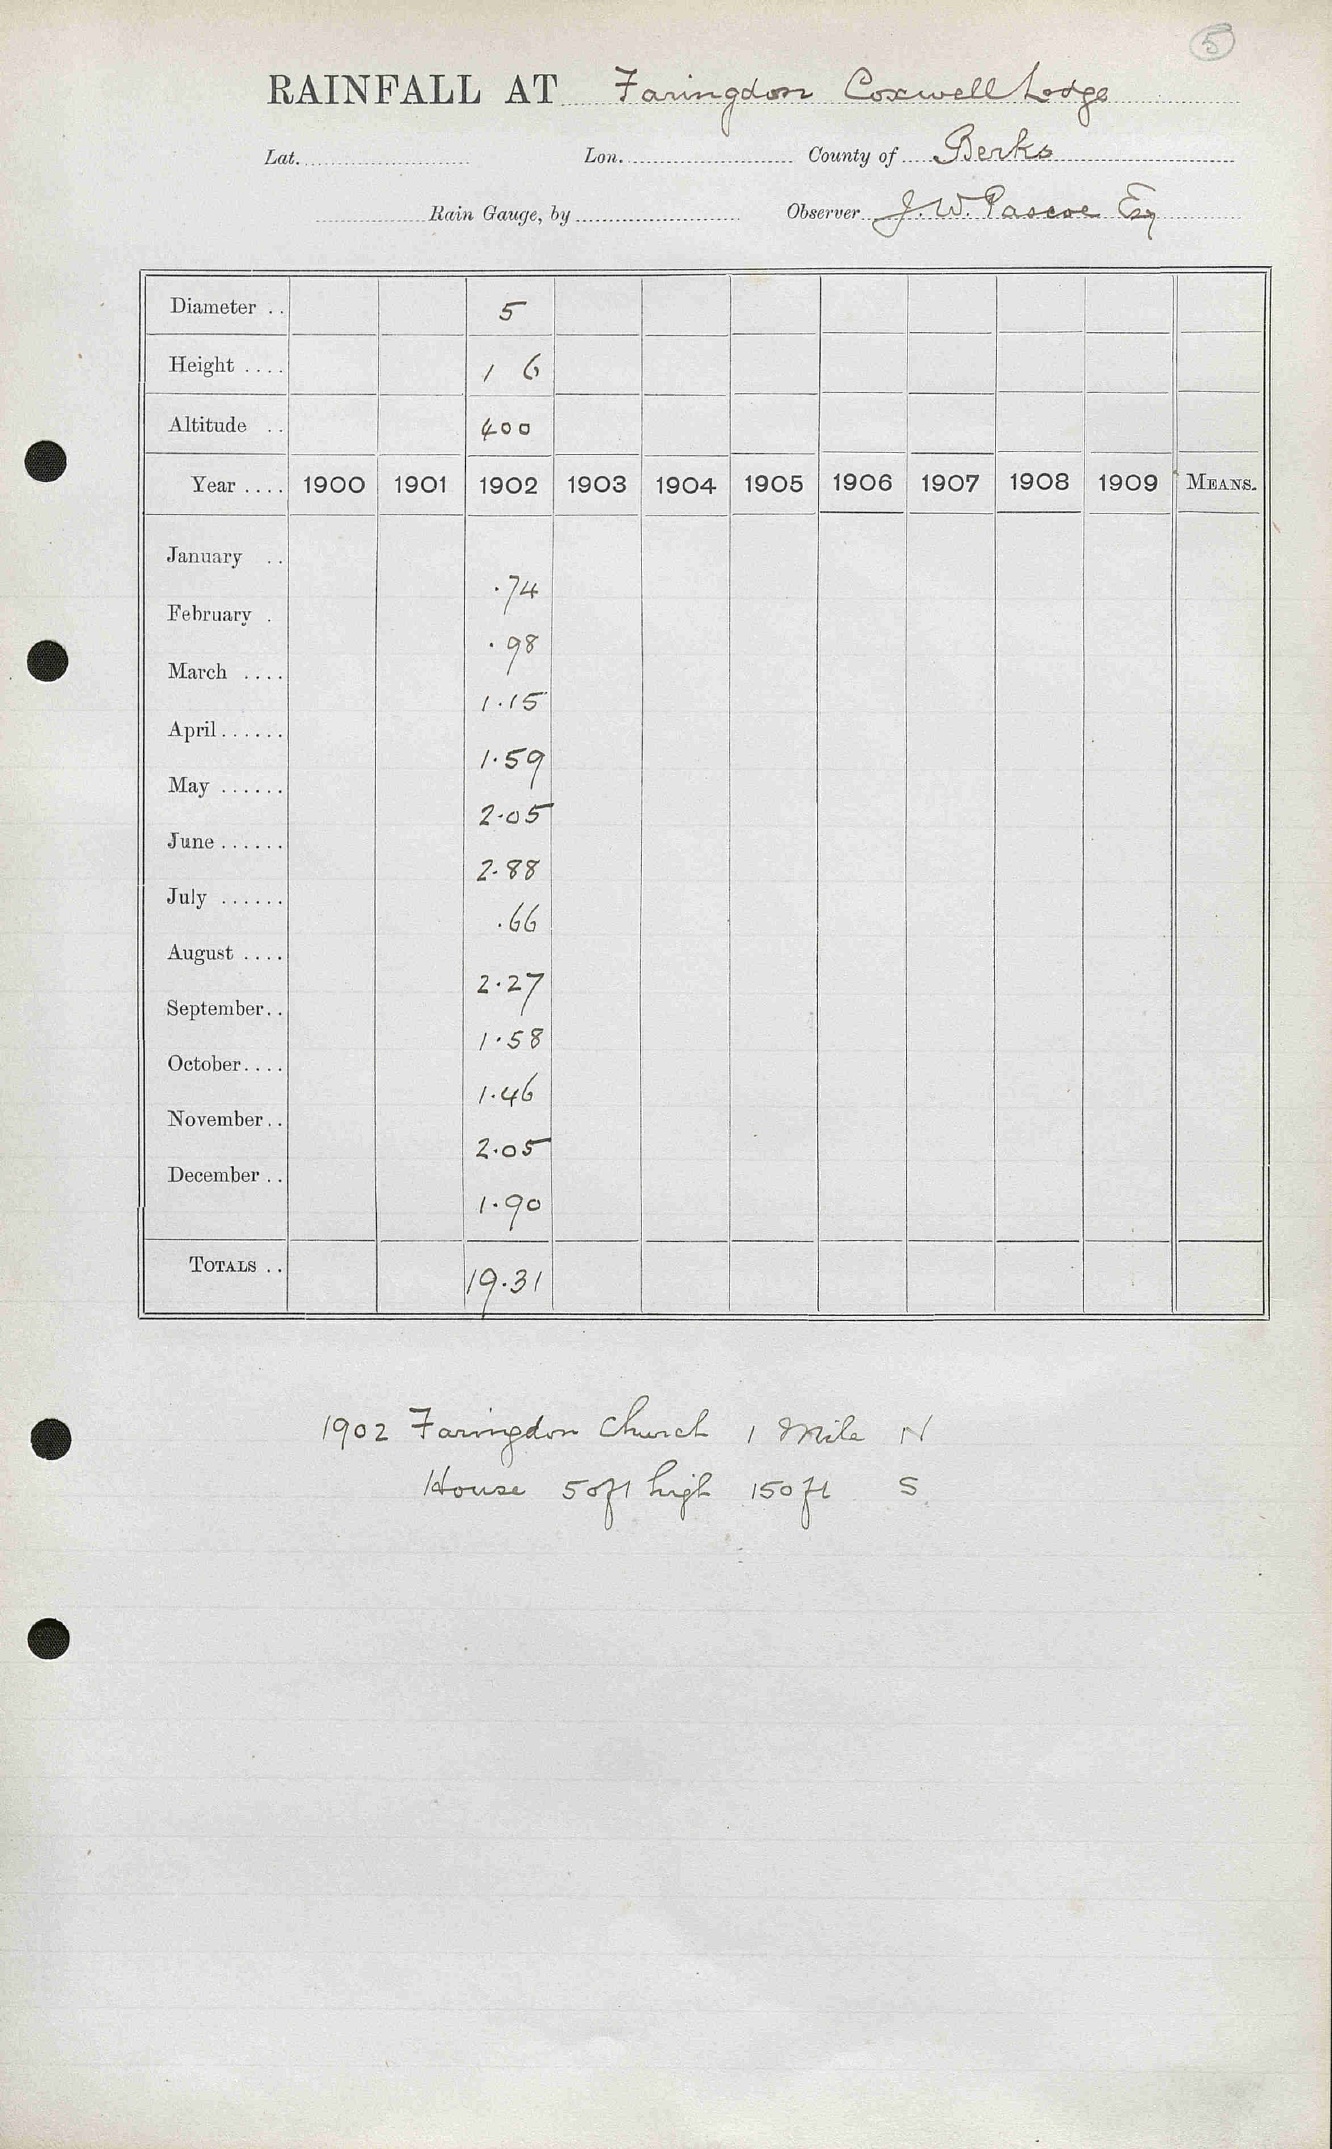 5
RAINFALL AT Faringdon Coxwell Lodge
Lat. Lon. County of Berks
Rain Gauge, by Observer J. W. Pascoe Esq
Diameter .. 5
Height .... 1 6
Altitude .. 400
Year .... 1900 1901 1902 1903 1904 1905 1906 1907 1908 1909 MEANS.
January .. .74
February . .98
March .... 1.15
April...... 1.59
May ...... 2.05
June...... 2.88
July ...... .66
August .... 2.27
September.. 1.58
October.... 1.46
November.. 2.05
December .. 1.90
TOTALS .. 19.31
1902 Faringdon Church 1 Mile N
House 50ft high 150ft S